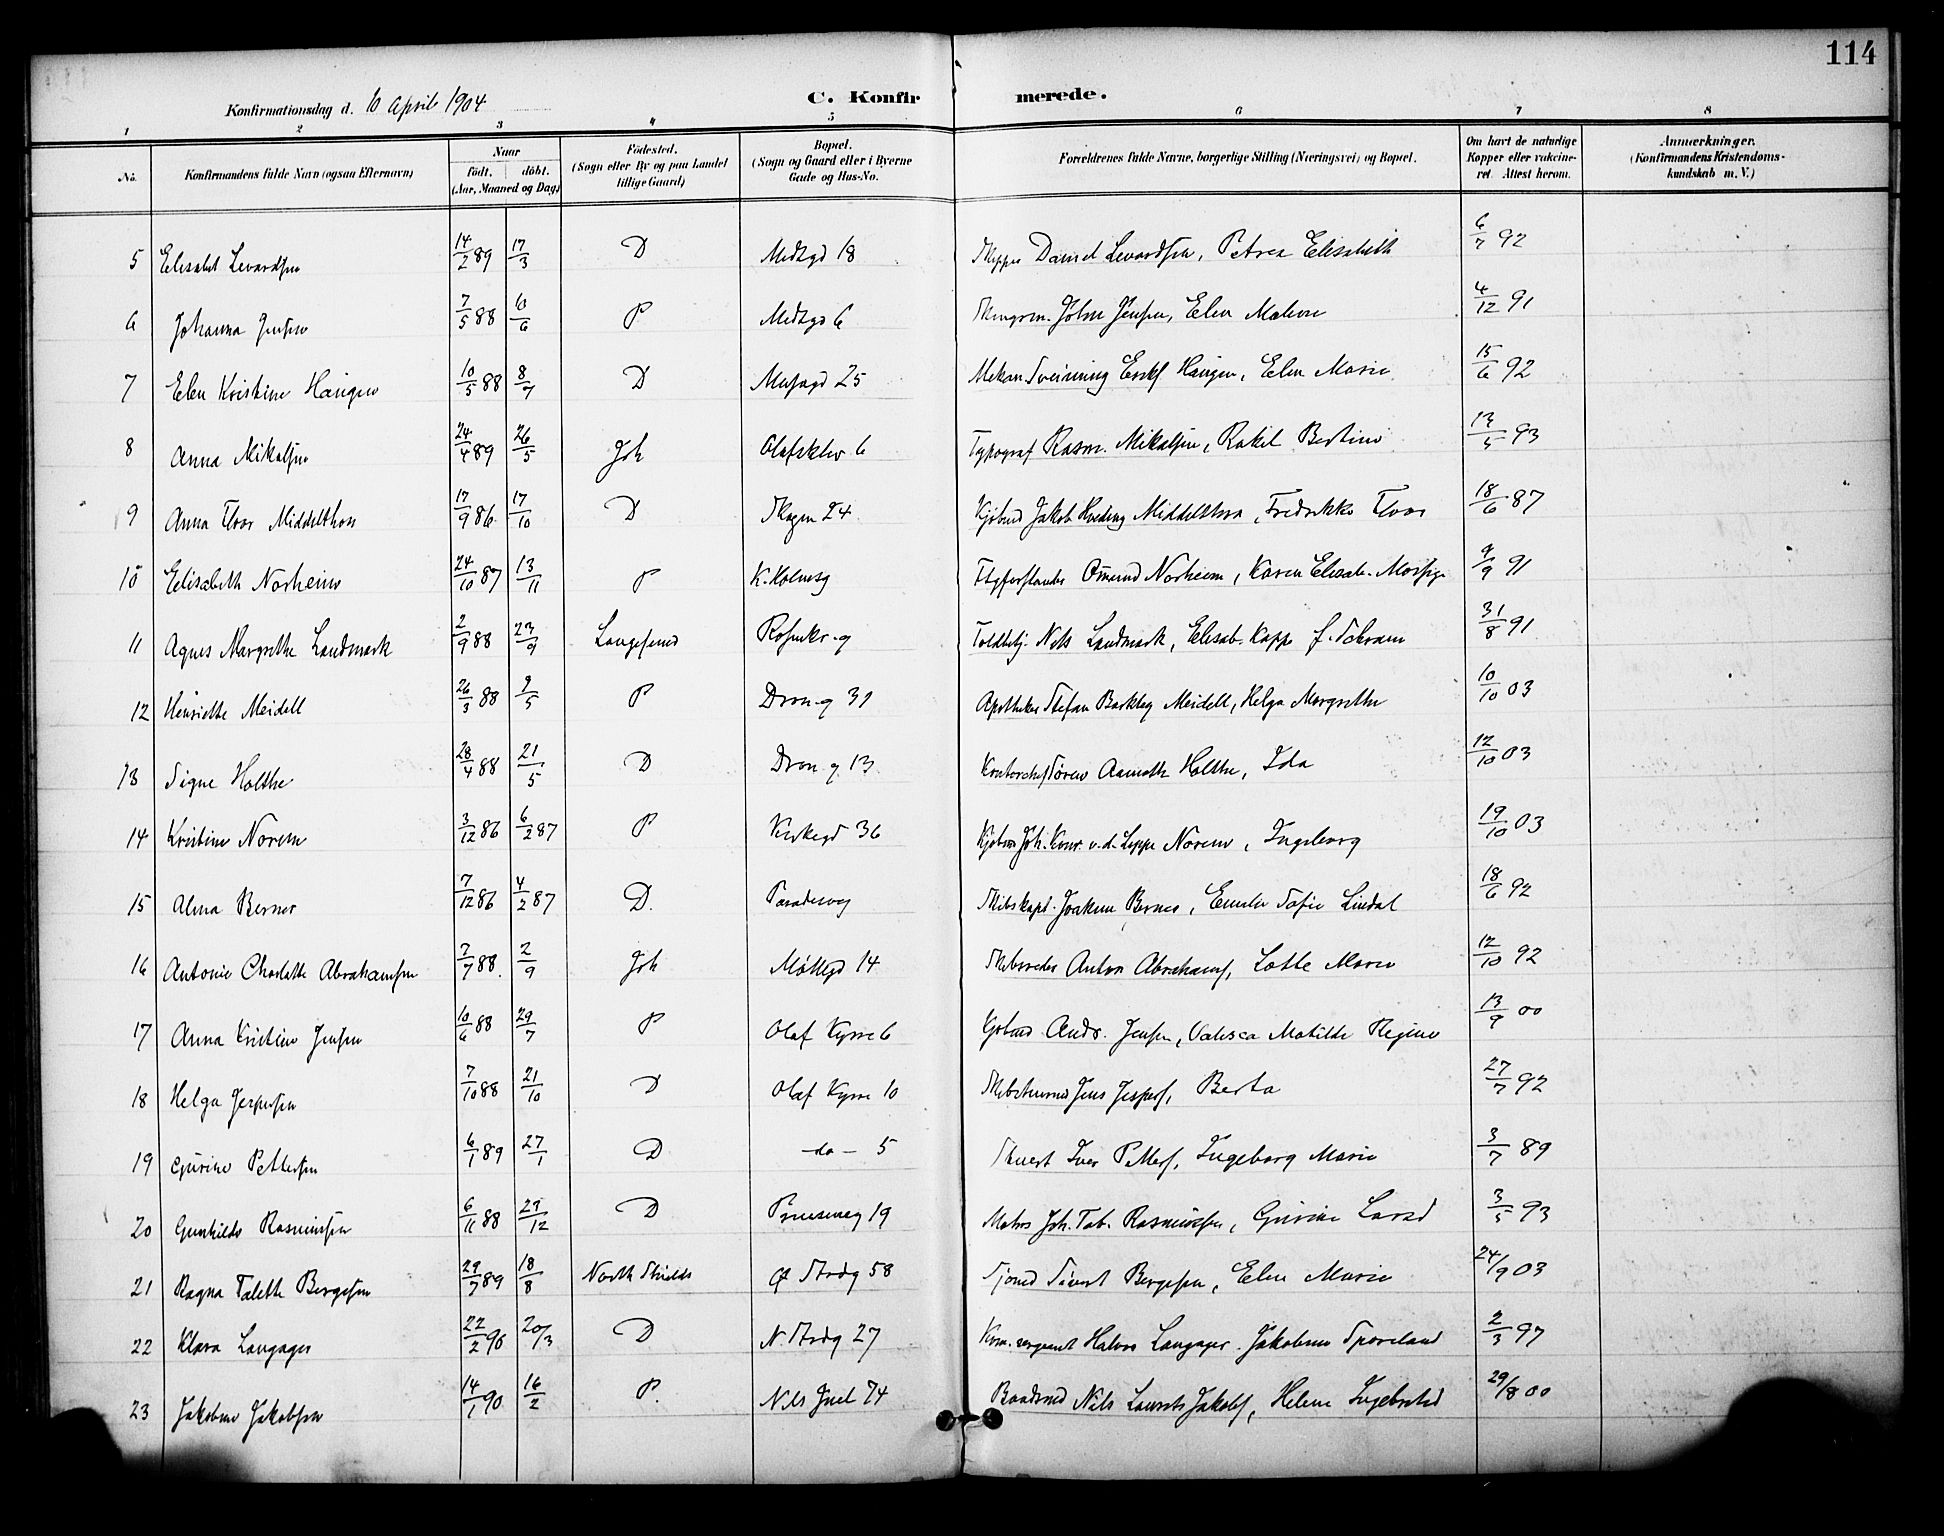 114
Konfirmationsdag d. 10 April 1904
C. Konfirmerede.
1 2 3 4 5 6 7 8
No. Konfirmandens fulde Navn (ogsaa Efternavn) Naar født, døbt. (Aar, Maaned og Dag) Fødested. (Sogn eller By og paa Landet tillige Gaard) Bopæl. (Sogn og Gaard eller i Byerne Gade og Hus-No. Forældrenes fulde Navne, borgerlige Stilling (Næringsvei) og Bopæl. Om havt de naturlige Kopper eller vakcineret. Attest herom. Anmærkninger. (Konfirmandens Kristendomskundskab m. V.)
5 Elisabet Levardsen 14/2 89 17/3 D Medlgd 18 Daniel Levardsen, Petrea Elisabeth 6/7 92
6 Johanna Jensen 7/5 88 10/6 P Medlgd 6 John Jensen, Elen Malene 4/12 91
7 Elen Kristine Haugen 10/5 88 8/7 D 25 Mekan. Sveinung Haugen, Elen Marie 15/6 92
8 Anna Mikalsen 24/4 89 26/5 Joh Olafsklev 6 Typograf Rasm. Mikalsen, Rakel Bertine 13/5 93
9 Anna Floor Middelthon 17/9 86 17/10 D Skagen 24 Kjøbmd Jakob Middelthon, Fredrikke Floor 18/6 87
10 Elisabeth Norheim 24/10 87 13/11 P K. Holmeg Omund Norheim, Karen Elisab. 4/9 91
11 Agnes Margrethe Landmark 2/9 88 23/9 Langesund Rosenkr. g Toldbetj. Nils Landmark, Elisab. Kappe f. Schram 31/8 91
12 Henriette Meidell 26/3 88 9/5 P Dron. g 31 Apotheker Stefan Barkley Meidell, Helga Margrethe 10/10 03
13 Signe Holthe 28/4 88 21/5 D Dron g 13 Kontorchef Søren Aamoth Holthe, Ida 12/10 03
14 Kristine Norem 3/12 86 6/2 87 P Kirkegd 36 Joh. Konr. v. d. Lippe Norem, Ingeborg 19/10 03
15 Alma Berner 7/12 86 4/2 87 D. Paradisveg Skibskapt. Joakim Berner, Emilie Sofie Lindal 18/6 92
16 Antonie Charlotte Abrahamsen 7/7 88. 2/9 Joh Møllegd 14 Skibsreder Anton Abrahams, Lotte Marie 12/10 92
17 Anna Kristine Jensen 10/6 88 29/7 P Olaf Kyrre 6 Andr. Jensen, Valesca Matilde Regine 13/9 00
18 Helga Jespersen 7/10 88 21/10 D Olaf Kyrre 10 Jens Jespers, Berta 27/7 92
19 Gurine Pettersen 6/1 89 27/1 D -do- 5 Iver Petters, Ingeborg Marie 3/7 89
20 Gunhilde Rasmussen 6/11 88 27/12 D 19 Matros Joh. Tob. Rasmussen, Gurine Larsd 3/5 93
21 Ragna Talette Bergesen 29/7 89 18/8 North Shields Strdg 58 Sjømd Sivert Bergesen, Elen Marie 24/9 03
22 Klara Langager 22/2 90 20/3 D N. Strdg 27 Kom. sergeant Halvor Langager. Jakobine 2/3 97
23 Jakobine Jakobsen 14/1 90 16/2 P. Nils Juel 74 Baadsmd Nils Laurits Jakobs, Helene Ingebretsd 29/8 00